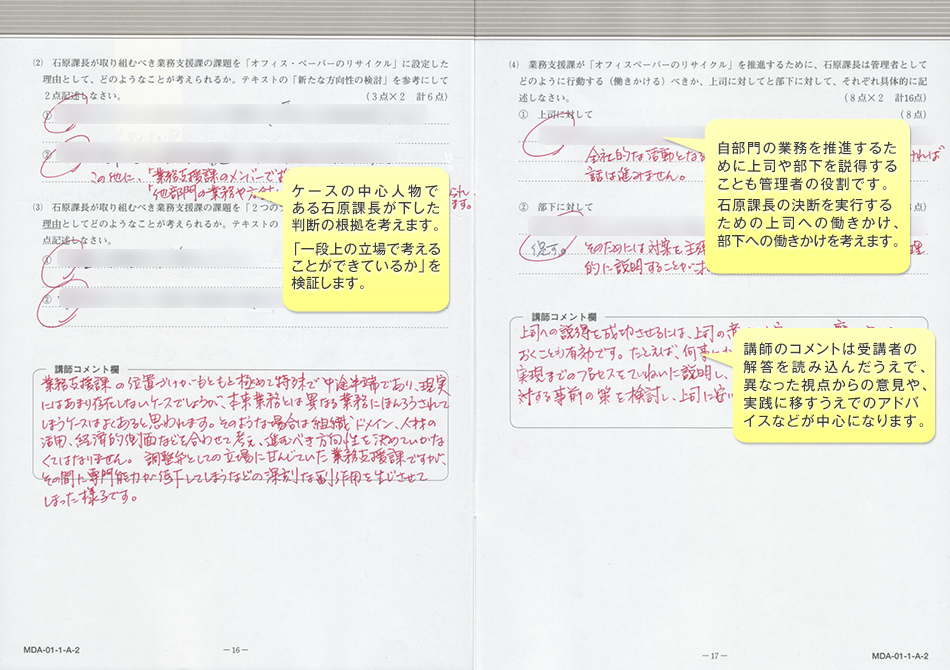 (2) 石原課長が取り組むべき業務支援課の課題を「オフィス・ペーパーのリサイクル」に設定した
理由として、どのようなことが考えられるか。テキストの「新たな方向性の検討」を参考にして
2点記述しなさい。
(3点×2 計6点)
①
②
この他に、「業務支援課のメンバーで
「他部門の業務や
ます。
ケースの中心人物で
ある石原課長が下した
判断の根拠を考えます。
「一段上の立場で考える
ことができているか」を
検証します。
(3) 石原課長が取り組むべき業務支援課の課題を「2つの
理由としてどのようなことが考えられるか。テキストの
点記述しなさい。
①
②
講師コメント欄
業務支援課の位置づけがもともと極めて特殊で中途半端であり、現実
にはあまり存在しないケースでしょうが、本来業務とは異なる業務にほんろうされて
しまうケースはよくあると思われます。そのような場合は組織ドメイン、人材の
活用、経済的側面などを合わせて考え、進むべき方向性を決めていかな
くてはなりません。調整弁としての立場に甘んじていた業務支援課ですが、
その間に専門能力が低下してしまうなどの深刻な副作用を生じさせて
しまった様子です。
MDA-01-1-A-2
－16－
(4) 業務支援課が「オフィスペーパーのリサイクル」を推進するために、石原課長は管理者として
どのように行動する(働きかける)べきか、上司に対してと部下に対して、それぞれ具体的に記
述しなさい。
(8点×2 計16点)
① 上司に対して
(8点)
全社的な活動となる
ければ
話は進みません。
自部門の業務を推進するた
めに上司や部下を説得する
ことも管理者の役割です。
石原課長の決断を実行する
ための上司への働きかけ、
部下への働きかけを考えます。
② 部下に対して
点)
促す。
そのためには対案を
理
的に説明することが
講師コメント欄
上司への説得を成功させるには、上司の
おくことも有効です。たとえば、何事
実現までのプロセスをていねいに説明し、
対する事前の策を検討し、上司に
講師のコメントは受講者の
解答を読み込んだうえで、
異なった視点からの意見や、
実践に移すうえでのアドバ
イスなどが中心になります。
－17－
MDA-01-1-A-2